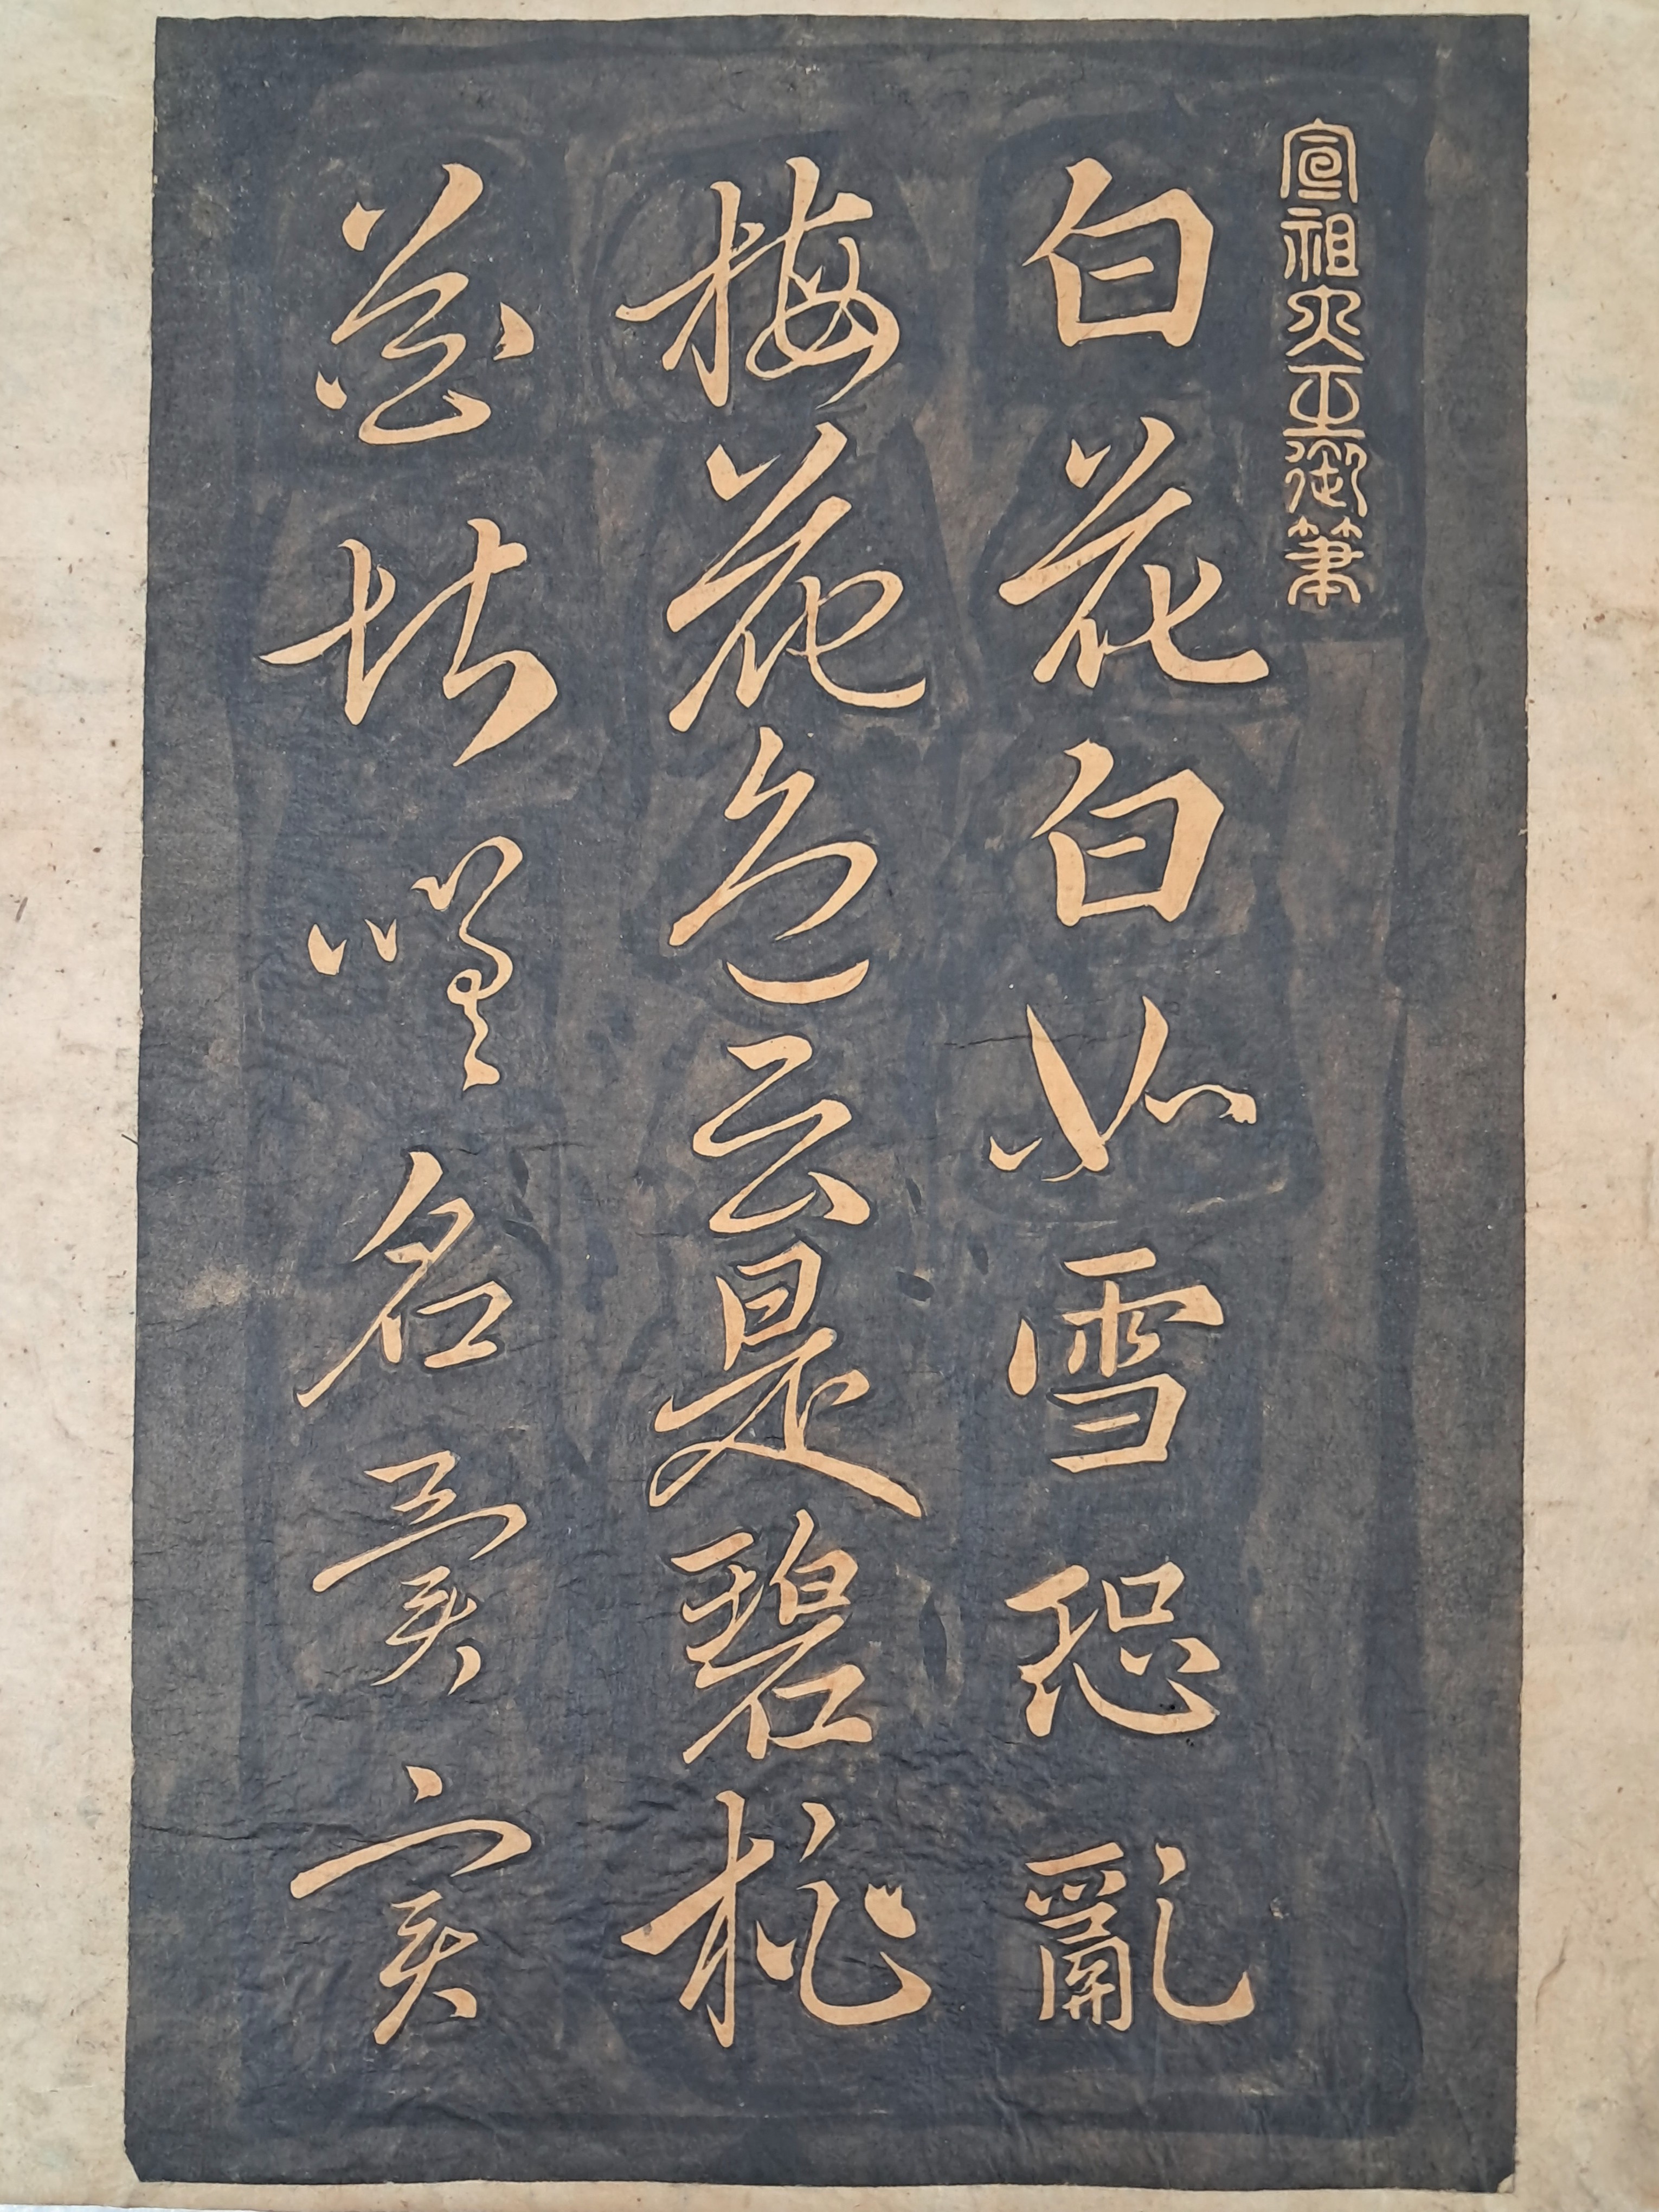 宣祖大王御筆
白花白如雪恐亂
梅花色云是碧桃
花堪嗟名實